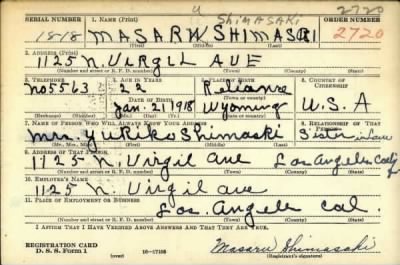 u
SHIMASAKI
2720
SERIAL NUMBER 1. NAME (Print) ORDER NUMBER
1818 MASARU SHIMASAKI 2720
(First) (Middle) (Last)
2. ADDRESS (Print)
1125 N. VIRGIL AVE
(Number and street or R. F. D. number) (Town) (County) (State)
3. TELEPHONE 4. AGE IN YEARS 5. PLACE OF BIRTH 6. COUNTRY OF CITIZENSHIP
NO 5563 22 Reliance
DATE OF BIRTH (Town or county)
Jan. 21 1918 Wyoming U.S.A
(Exchange) (Number) (Mo.) (Day) (Yr.) (State or country)
7. NAME OF PERSON WHO WILL ALWAYS KNOW YOUR ADDRESS 8. RELATIONSHIP OF THAT PERSON
Mrs. Yuriko Shimasaki Sister in law
(Mr., Mrs., Miss) (First) (Middle) (Last)
9. ADDRESS OF THAT PERSON
1125 N. Virgil Ave Los Angeles
(Number and street or R. F. D. number) (Town) (County) (State)
10. EMPLOYER'S NAME
1125 N. Virgil ave
11. PLACE OF EMPLOYMENT OR BUSINESS
Los. Angeles Cal.
(Number and street or R. F. D. number) (Town) (County) (State)
I AFFIRM THAT I HAVE VERIFIED ABOVE ANSWERS AND THAT THEY ARE TRUE.
REGISTRATION CARD
D. S. S. Form 1 16-17105 Masaru Shimasaki
(Registrant's signature)